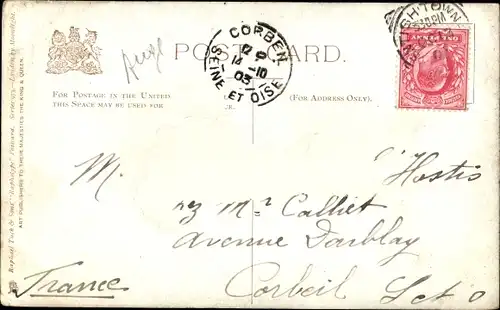 POST CARD.
FOR POSTAGE IN THE UNITED
THIS SPACE MAY BE USED FOR
(FOR ADDRESS ONLY.)
CORBEIL
14 -10
03
SEINE ET OISE
GH.TOWN
Raphael Tuck & Sons'
ART PUBLISHERS TO THEIR MAJESTIES THE KING & QUEEN.
M. "Hostis
Mr Calliet
Avenue Darblay
Corbeil S et O
France